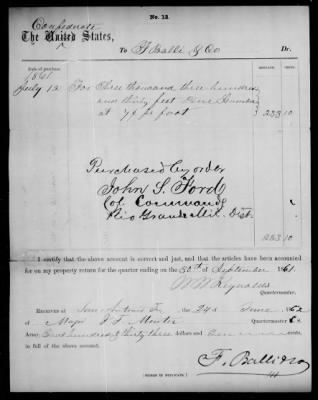 No. 12.
Confederate
The United States,
To F Balli & Co Dr.
Date of purchase.
1861
July 12 For Three thousand three hundred
and thirty feet Pine Lumber
at 7¢ pr foot $ 233 10
Purchased by order
John S. Ford
Col Command
Rio Grande Mil. Dist.
233 10
I certify that the above account is correct and just, and that the articles have been accounted
for on my property return for the quarter ending on the 30th of September 1861.
W W Reynolds
Quartermaster.
Received at San Antonio Tx the 24th June 1862
of Major Quartermaster
Two hundred & thirty three dollars and Ten cents,
in full of the above account.
F. Balli & Co
(SIGNED IN DUPLICATE.)